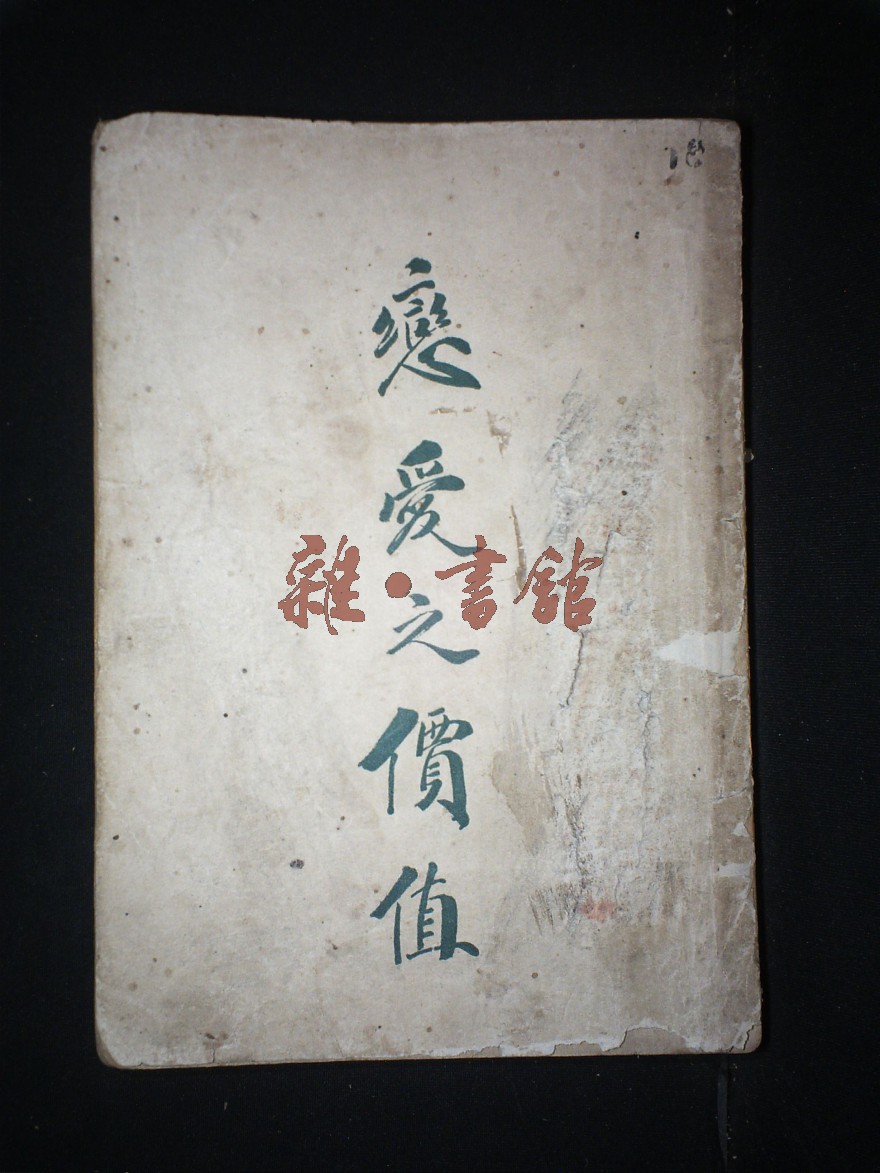 戀愛之價值
雜·書館